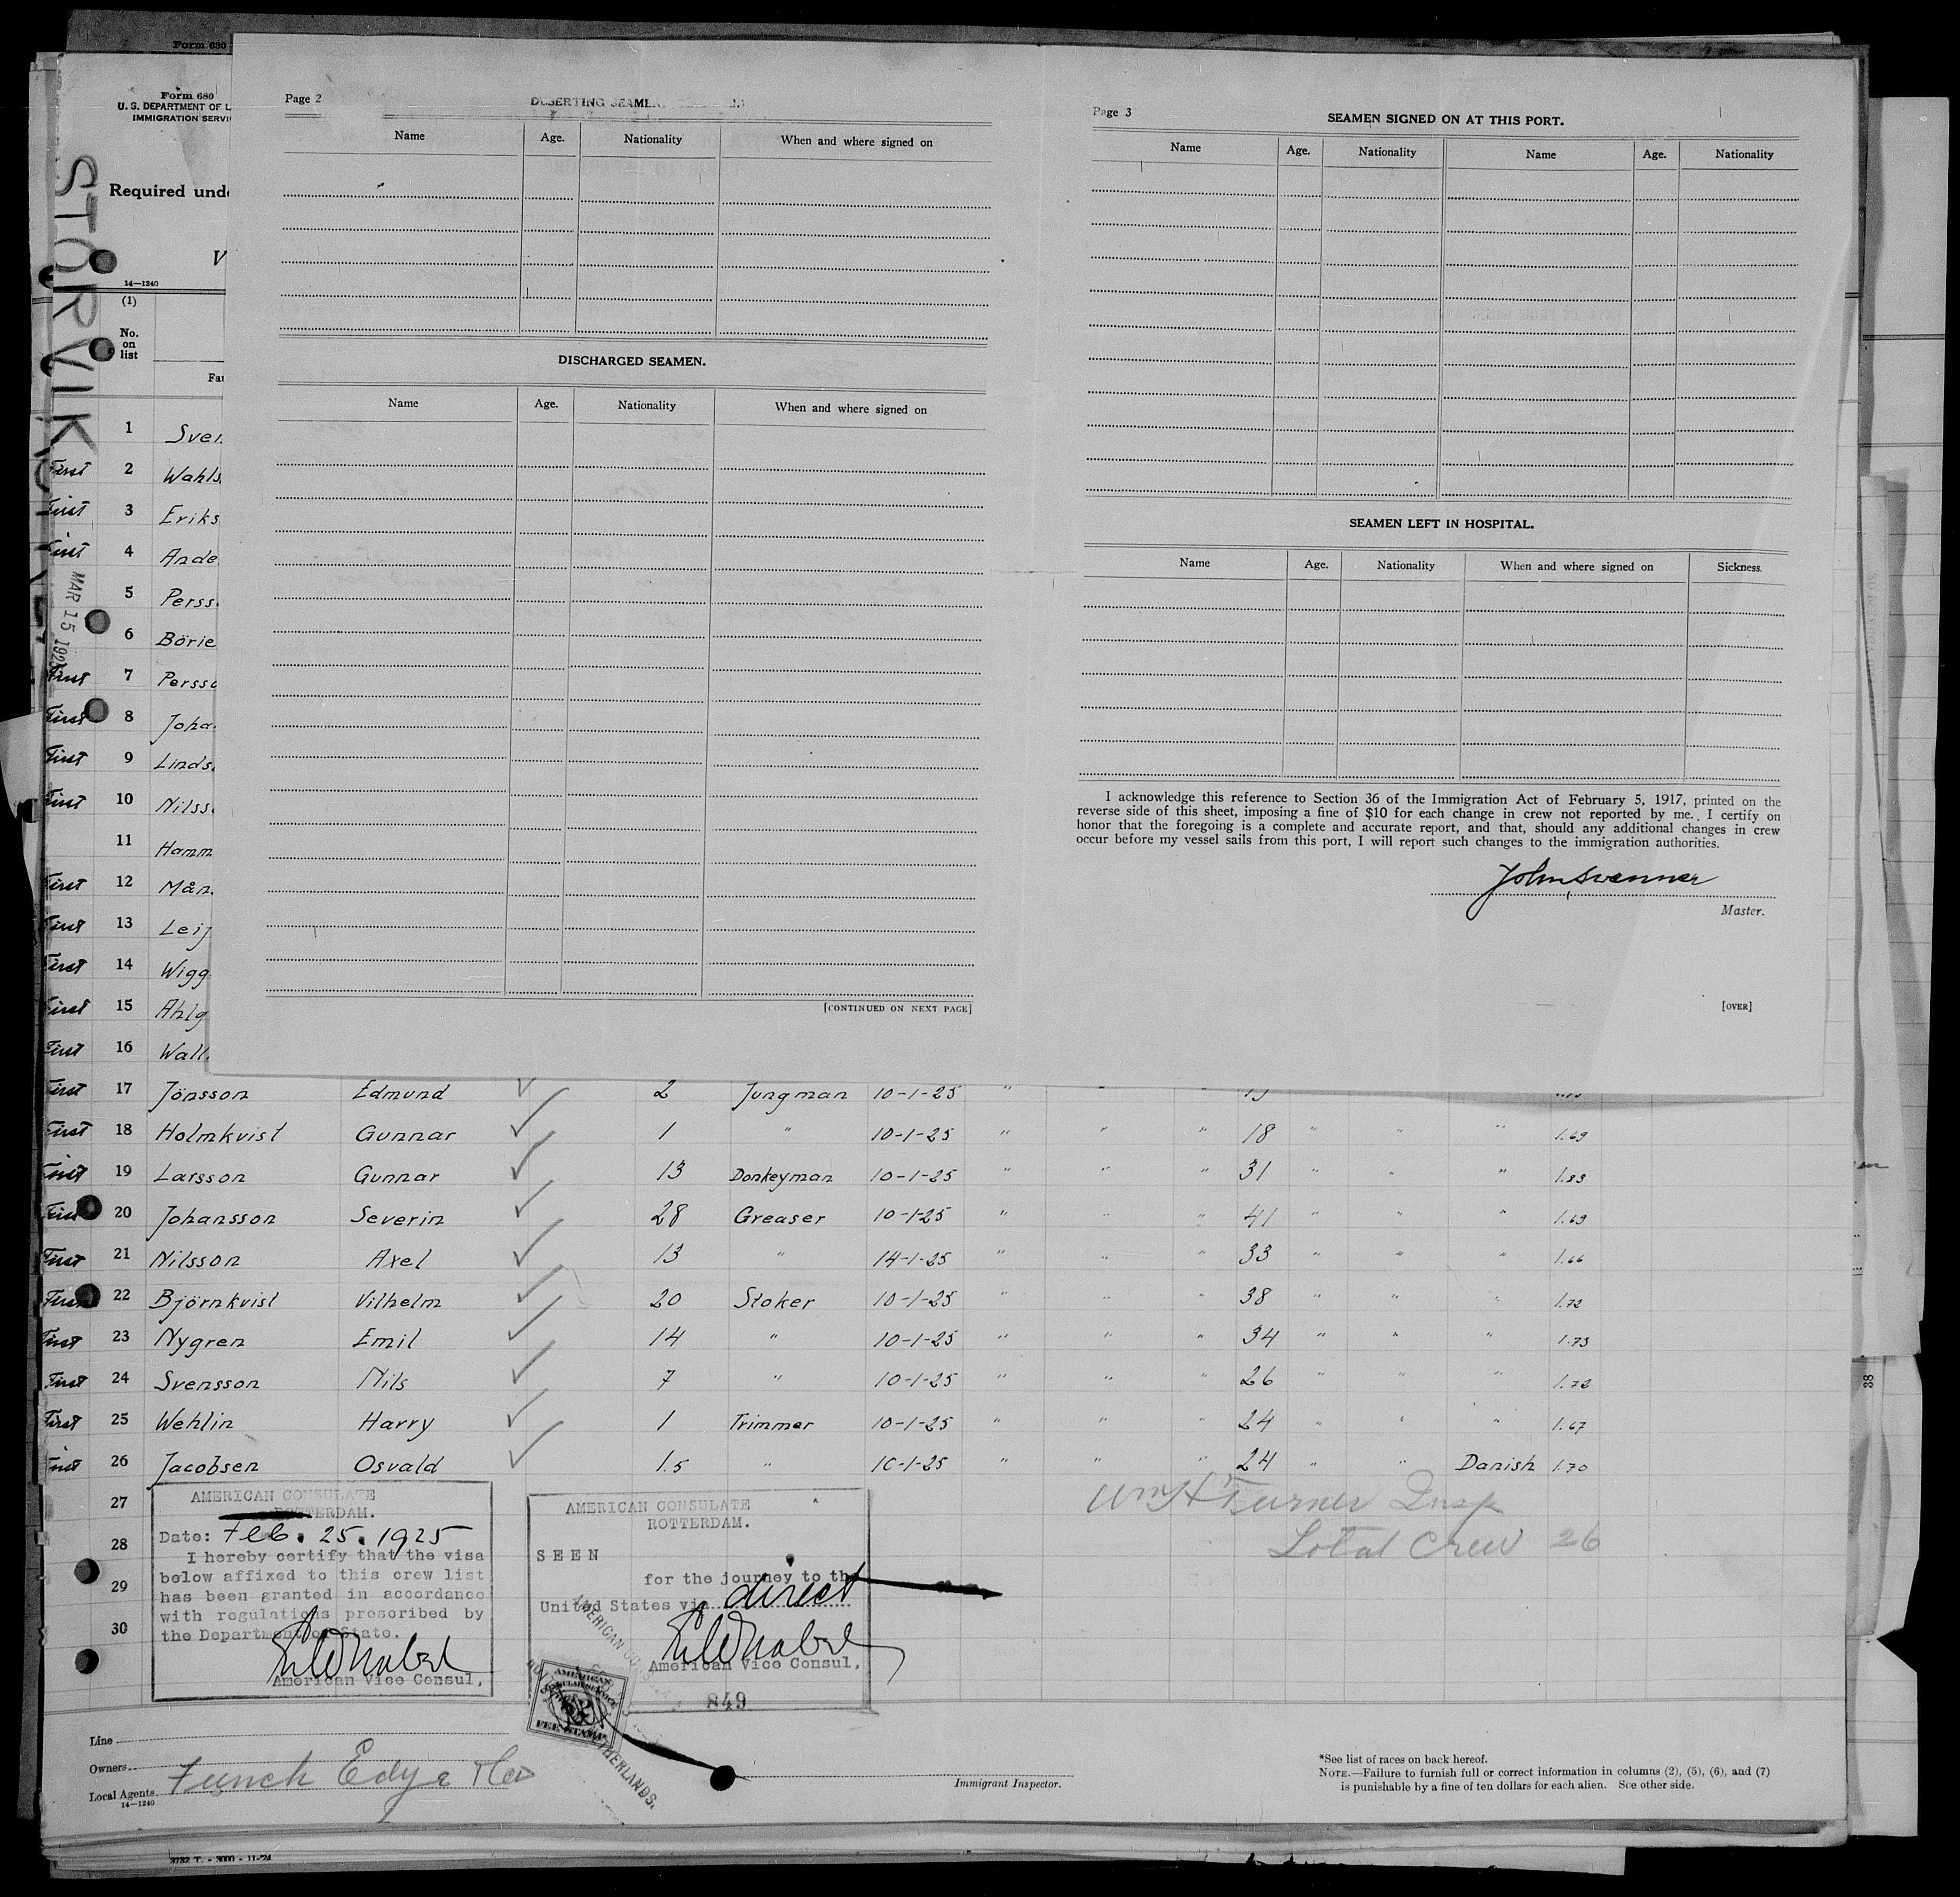 Form 630
Form 680
U. S. DEPARTMENT OF L
IMMIGRATION SERVI
Required unde
V
14—1240
STORVIK
MAR 15 192
(1)
No. on list
Far
1 Sven
First 2 Wahls
First 3 Eriks
First 4 Ande
5 Perss
6 Börje
First 7 Persso
First 8 Joha
First 9 Linds
First 10 Nilss
11 Hamm
First 12 Mån
First 13 Leij
First 14 Wigg
First 15 Ahlg
First 16 Wall
Page 2
DESERTING SEAMEN
Name Age. Nationality When and where signed on
DISCHARGED SEAMEN.
Name Age. Nationality When and where signed on
[CONTINUED ON NEXT PAGE]
Page 3
SEAMEN SIGNED ON AT THIS PORT.
Name Age. Nationality Name Age. Nationality
SEAMEN LEFT IN HOSPITAL.
Name Age. Nationality When and where signed on Sickness.
I acknowledge this reference to Section 36 of the Immigration Act of February 5, 1917, printed on the
reverse side of this sheet, imposing a fine of $10 for each change in crew not reported by me. I certify on
honor that the foregoing is a complete and accurate report, and that, should any additional changes in crew
occur before my vessel sails from this port, I will report such changes to the immigration authorities.
John Svenner
Master.
[OVER]
First 17 Jönsson Edmund 2 Jungman 10-1-25 "
First 18 Holmkvist Gunnar 1 " 10-1-25 " " " 18 " " " 1.69
First 19 Larsson Gunnar 13 Donkeyman 10-1-25 " " " 31 " " " 1.83
First 20 Johansson Severin 28 Greaser 10-1-25 " " " 41 " " " 1.69
First 21 Nilsson Axel 13 " 14-1-25 " " " 33 " " " 1.66
First 22 Björnkvist Vilhelm 20 Stoker 10-1-25 " " " 38 " " " 1.72
First 23 Nygren Emil 14 " 10-1-25 " " " 34 " " " 1.73
First 24 Svensson Nils 7 " 10-1-25 " " " 26 " " " 1.72
First 25 Wehlin Harry 1 Trimmer 10-1-25 " " " 24 " " " 1.67
First 26 Jacobsen Osvald 1.5 " 10-1-25 " " " 24 " " Danish 1.70
27
28
29
30
AMERICAN CONSULATE
ROTTERDAM.
Date: Feb. 25. 1925
I hereby certify that the visa
below affixed to this crew list
has been granted in accordance
with regulations prescribed by
the Department of State.
American Vice Consul,
AMERICAN CONSULATE
ROTTERDAM.
SEEN
for the journey to the
United States via direct
American Vice Consul,
849
AMERICAN
CONSULAR SERVICE
FEE STAMP
NETHERLANDS.
Wm H Turner Insp
Total Crew 26
Line
Owners
Local Agents Funch Edye & Co
14—1240
Immigrant Inspector.
*See list of races on back hereof.
NOTE.—Failure to furnish full or correct information in columns (2), (5), (6), and (7)
is punishable by a fine of ten dollars for each alien. See other side.
3732 T. - 3000 - 11-'24
38